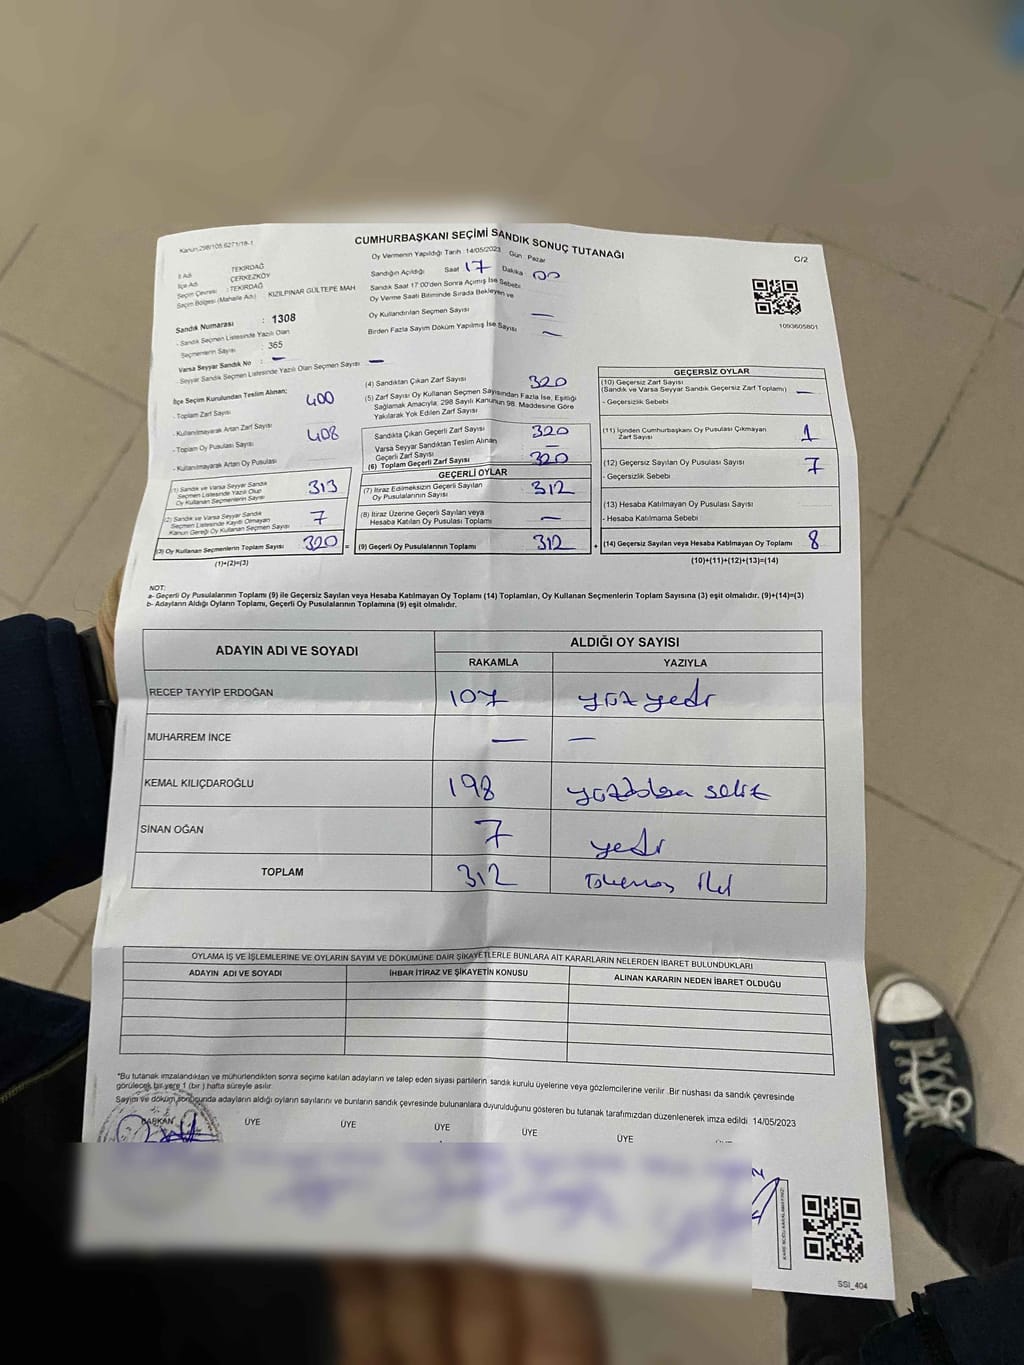 Kanun:298/105.6271/18-1
CUMHURBAŞKANI SEÇİMİ SANDIK SONUÇ TUTANAĞI
C/2
1093605801
İl Adı TEKİRDAĞ
İlçe Adı ÇERKEZKÖY
Seçim Çevresi : TEKİRDAĞ
Seçim Bölgesi (Mahalle Adı) : KIZILPINAR GÜLTEPE MAH
Sandık Numarası : 1308
- Sandık Seçmen Listesinde Yazılı Olan
Seçmenlerin Sayısı : 365
Varsa Seyyar Sandık No : —
- Seyyar Sandık Seçmen Listesinde Yazılı Olan Seçmen Sayısı —
Oy Vermenin Yapıldığı Tarih : 14/05/2023 Gün Pazar
Sandığın Açıldığı Saat 17 Dakika 00
Sandık Saat 17:00'den Sonra Açılmış İse Sebebi
Oy Verme Saati Bitiminde Sırada Bekleyen ve
Oy Kullandırılan Seçmen Sayısı —
Birden Fazla Sayım Döküm Yapılmış İse Sayısı —
İlçe Seçim Kurulundan Teslim Alınan;
- Toplam Zarf Sayısı 400
- Kullanılmayarak Artan Zarf Sayısı
- Toplam Oy Pusulası Sayısı 408
- Kullanılmayarak Artan Oy Pusulası
(1) Sandık ve Varsa Seyyar Sandık
Seçmen Listesinde Yazılı Olup
Oy Kullanan Seçmenlerin Sayısı 313
(2) Sandık ve Varsa Seyyar Sandık
Seçmen Listesinde Kayıtlı Olmayan
Kanun Gereği Oy Kullanan Seçmen Sayısı 7
(3) Oy Kullanan Seçmenlerin Toplam Sayısı 320 =
(1)+(2)=(3)
(4) Sandıktan Çıkan Zarf Sayısı 320
(5) Zarf Sayısı Oy Kullanan Seçmen Sayısından Fazla İse, Eşitliği
Sağlamak Amacıyla, 298 Sayılı Kanunun 98. Maddesine Göre
Yakılarak Yok Edilen Zarf Sayısı
Sandıkta Çıkan Geçerli Zarf Sayısı 320
Varsa Seyyar Sandıktan Teslim Alınan
Geçerli Zarf Sayısı —
(6) Toplam Geçerli Zarf Sayısı 320
GEÇERLİ OYLAR
(7) İtiraz Edilmeksizin Geçerli Sayılan
Oy Pusulalarının Sayısı 312
(8) İtiraz Üzerine Geçerli Sayılan veya
Hesaba Katılan Oy Pusulası Toplamı —
(9) Geçerli Oy Pusulalarının Toplamı 312 +
GEÇERSİZ OYLAR
(10) Geçersiz Zarf Sayısı
(Sandık ve Varsa Seyyar Sandık Geçersiz Zarf Toplamı) —
- Geçersizlik Sebebi
(11) İçinden Cumhurbaşkanı Oy Pusulası Çıkmayan
Zarf Sayısı 1
(12) Geçersiz Sayılan Oy Pusulası Sayısı 7
- Geçersizlik Sebebi
(13) Hesaba Katılmayan Oy Pusulası Sayısı
- Hesaba Katılmama Sebebi
(14) Geçersiz Sayılan veya Hesaba Katılmayan Oy Toplamı 8
(10)+(11)+(12)+(13)=(14)
NOT:
a- Geçerli Oy Pusulalarının Toplamı (9) ile Geçersiz Sayılan veya Hesaba Katılmayan Oy Toplamı (14) Toplamları, Oy Kullanan Seçmenlerin Toplam Sayısına (3) eşit olmalıdır. (9)+(14)=(3)
b- Adayların Aldığı Oyların Toplamı, Geçerli Oy Pusulalarının Toplamına (9) eşit olmalıdır.
ADAYIN ADI VE SOYADI ALDIĞI OY SAYISI
RAKAMLA YAZIYLA
RECEP TAYYİP ERDOĞAN 107 yüz yedi
MUHARREM İNCE — —
KEMAL KILIÇDAROĞLU 198 yüzdoksan sekiz
SİNAN OĞAN 7 yedi
TOPLAM 312
OYLAMA İŞ VE İŞLEMLERİNE VE OYLARIN SAYIM VE DÖKÜMÜNE DAİR ŞİKAYETLERLE BUNLARA AİT KARARLARIN NELERDEN İBARET BULUNDUKLARI
ADAYIN ADI VE SOYADI İHBAR İTİRAZ VE ŞİKAYETİN KONUSU ALINAN KARARIN NEDEN İBARET OLDUĞU
*Bu tutanak imzalandıktan ve mühürlendikten sonra seçime katılan adayların ve talep eden siyasi partilerin sandık kurulu üyelerine veya gözlemcilerine verilir .Bir nüshası da sandık çevresinde
görülecek bir yere 1 (bir ) hafta süreyle asılır.
Sayım ve döküm sonucunda adayların aldığı oyların sayılarını ve bunların sandık çevresinde bulunanlara duyurulduğunu gösteren bu tutanak tarafımızdan düzenlenerek imza edildi 14/05/2023
BAŞKAN ÜYE ÜYE ÜYE ÜYE ÜYE
SSI_404